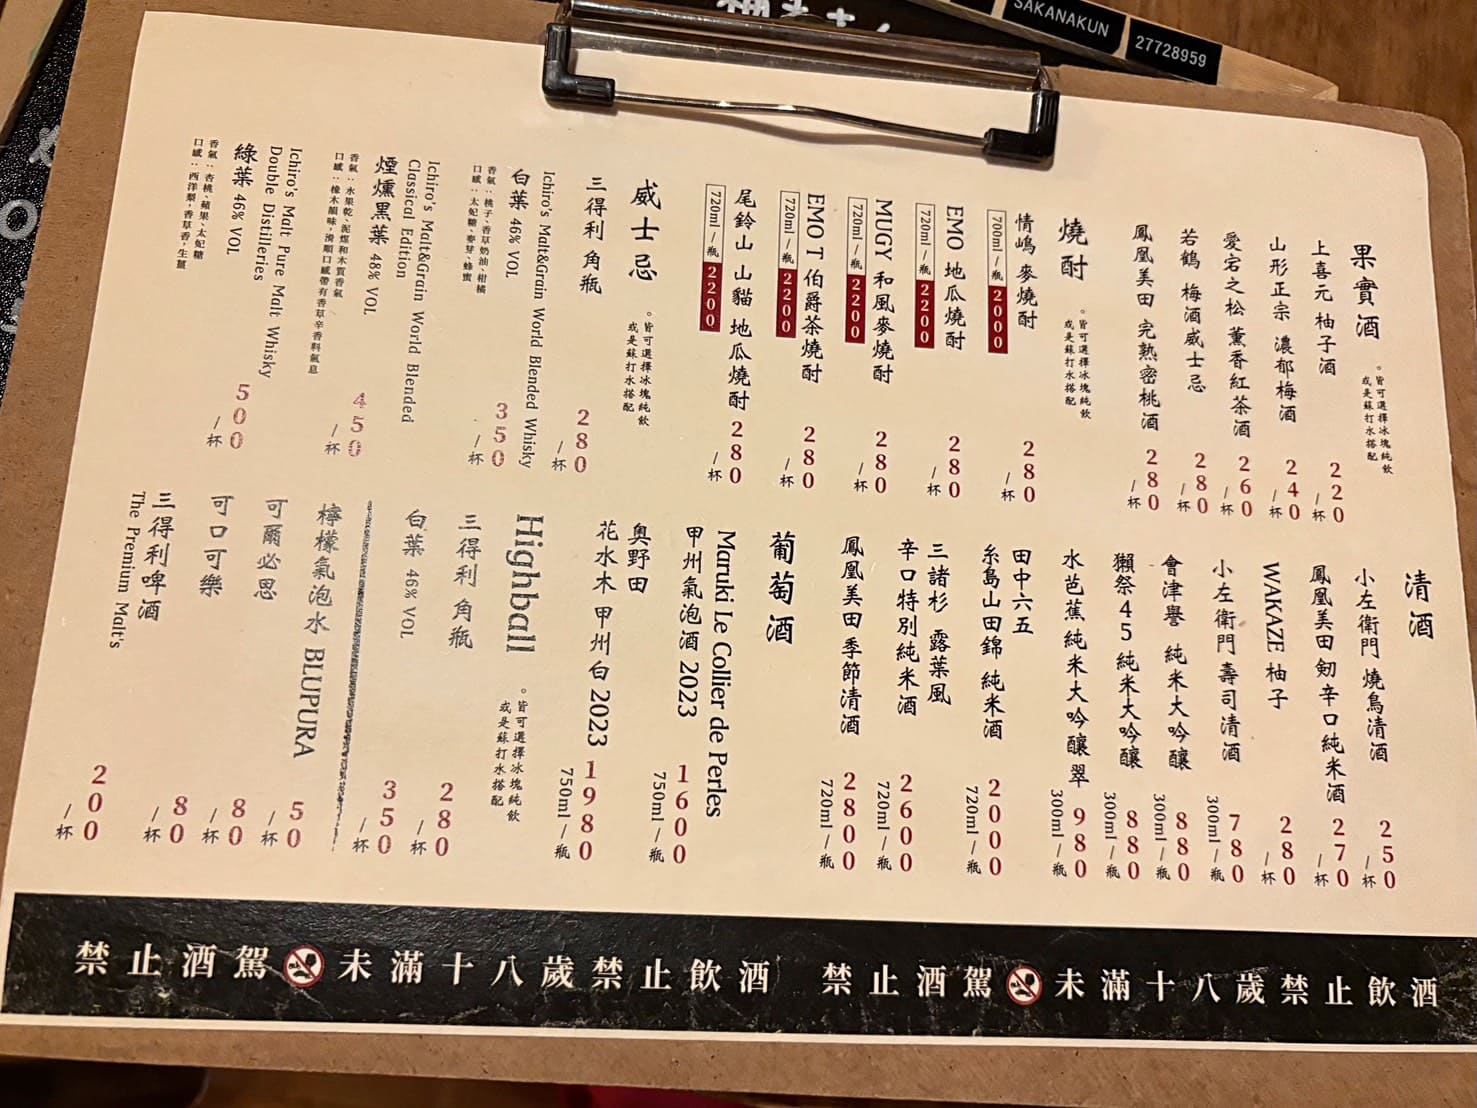 SAKANAKUN
27728959
果實酒
。皆可選擇冰塊純飲
或是蘇打水搭配
上喜元 柚子酒 220/杯
山形正宗 濃郁梅酒 240/杯
愛宕之松 薰香紅茶酒 260/杯
若鶴 梅酒威士忌 280/杯
鳳凰美田 完熟密桃酒 280/杯
燒酎
。皆可選擇冰塊純飲
或是蘇打水搭配
情嶋 麥燒酎 280/杯
700ml/瓶 2000
EMO 地瓜燒酎 280/杯
720ml/瓶 2200
MUGY 和風麥燒酎 280/杯
720ml/瓶 2200
EMO T 伯爵茶燒酎 280/杯
720ml/瓶 2200
尾鈴山 山貓 地瓜燒酎 280/杯
720ml/瓶 2200
威士忌
。皆可選擇冰塊純飲
或是蘇打水搭配
三得利 角瓶 280/杯
Ichiro's Malt&Grain World Blended Whisky
白葉 46% VOL 350/杯
香氣：桃子、香草奶油、柑橘
口感：太妃糖、麥芽、蜂蜜
Ichiro's Malt&Grain World Blended
Classical Edition
煙燻黑葉 48% VOL 450/杯
香氣：水果乾、泥煤和木質香氣
口感：橡木韻味，滑順口感帶有香草辛香料氣息
Ichiro's Malt Pure Malt Whisky
Double Distilleries
綠葉 46% VOL 500/杯
香氣：杏桃、蘋果、太妃糖
口感：西洋梨，香草香，生薑
清酒
小左衛門 燒鳥清酒 250/杯
鳳凰美田 劒辛口純米酒 270/杯
WAKAZE 柚子 280/杯
小左衛門 壽司清酒 780 300ml/瓶
會津譽 純米大吟釀 880 300ml/瓶
獺祭45 純米大吟釀 880 300ml/瓶
水芭蕉 純米大吟釀 翠 980 300ml/瓶
田中六五
糸島山田錦 純米酒 2000 720ml/瓶
三諸杉 露葉風
辛口特別純米酒 2600 720ml/瓶
鳳凰美田 季節清酒 2800 720ml/瓶
葡萄酒
Maruki Le Collier de Perles
甲州氣泡酒 2023 1600 750ml/瓶
奧野田
花水木 甲州 白 2023 1980 750ml/瓶
Highball
。皆可選擇冰塊純飲
或是蘇打水搭配
三得利 角瓶 280/杯
白葉 46% VOL 350/杯
檸檬氣泡水 BLUPURA 50/杯
可爾必思 80/杯
可口可樂 80/杯
三得利啤酒 200/杯
The Premium Malt's
禁止酒駕 未滿十八歲禁止飲酒 禁止酒駕 未滿十八歲禁止飲酒